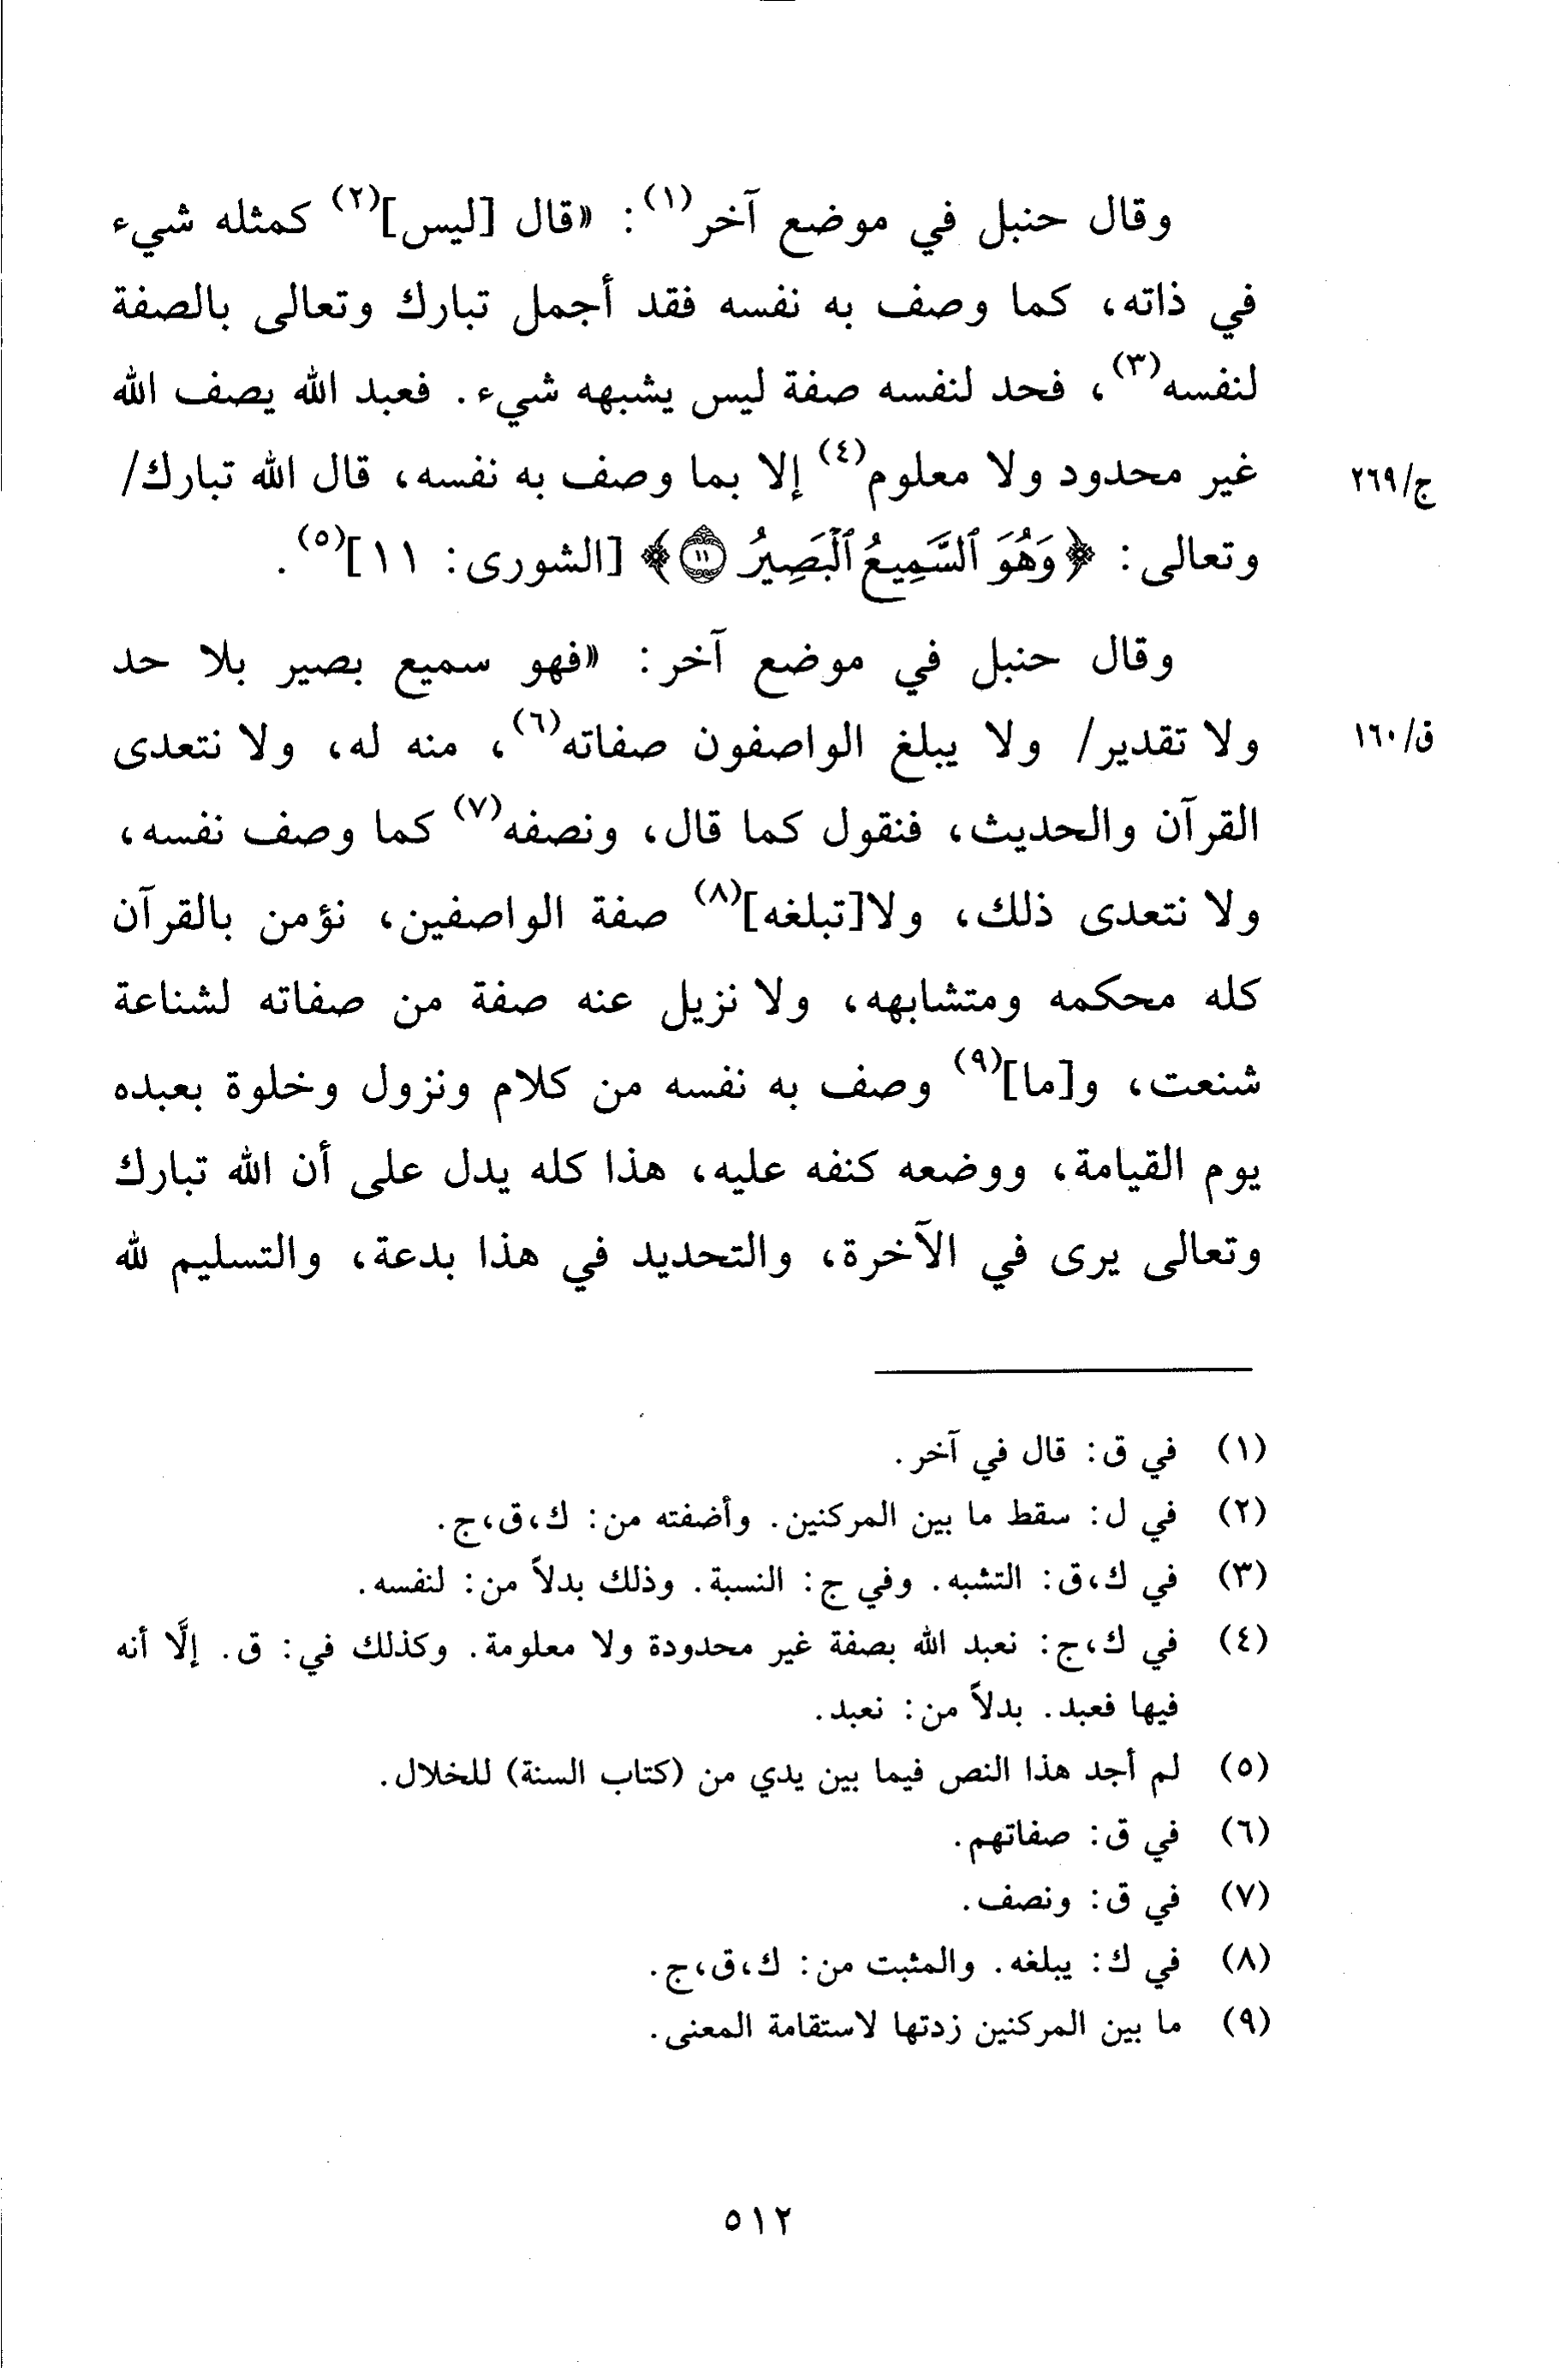 وقال حنبل في موضع آخر(١): «قال [ليس](٢) كمثله شيء
في ذاته، كما وصف به نفسه فقد أجمل تبارك وتعالى بالصفة
لنفسه(٣)، فحد لنفسه صفة ليس يشبهه شيء. فعبد الله يصف الله
غير محدود ولا معلوم(٤) إلا بما وصف به نفسه، قال الله تبارك/
ج/٢٦٩
وتعالى: ﴿وَهُوَ ٱلسَّمِيعُ ٱلْبَصِيرُ ۝١١﴾ [الشورى: ١١](٥).
وقال حنبل في موضع آخر: «فهو سميع بصير بلا حد
ولا تقدير/ ولا يبلغ الواصفون صفاته(٦)، منه له، ولا نتعدى
ق/١٦٠
القرآن والحديث، فنقول كما قال، ونصفه(٧) كما وصف نفسه،
ولا نتعدى ذلك، ولا[تبلغه](٨) صفة الواصفين، نؤمن بالقرآن
كله محكمه ومتشابهه، ولا نزيل عنه صفة من صفاته لشناعة
شنعت، و[ما](٩) وصف به نفسه من كلام ونزول وخلوة بعبده
يوم القيامة، ووضعه كنفه عليه، هذا كله يدل على أن الله تبارك
وتعالى يرى في الآخرة، والتحديد في هذا بدعة، والتسليم لله
(١) في ق: قال في آخر.
(٢) في ل: سقط ما بين المركنين. وأضفته من: ك،ق،ج.
(٣) في ك،ق: التشبه. وفي ج: النسبة. وذلك بدلاً من: لنفسه.
(٤) في ك،ج: نعبد الله بصفة غير محدودة ولا معلومة. وكذلك في: ق. إلَّا أنه
فيها فعبد. بدلاً من: نعبد.
(٥) لم أجد هذا النص فيما بين يدي من (كتاب السنة) للخلال.
(٦) في ق: صفاتهم.
(٧) في ق: ونصف.
(٨) في ك: يبلغه. والمثبت من: ك،ق،ج.
(٩) ما بين المركنين زدتها لاستقامة المعنى.
٥١٢